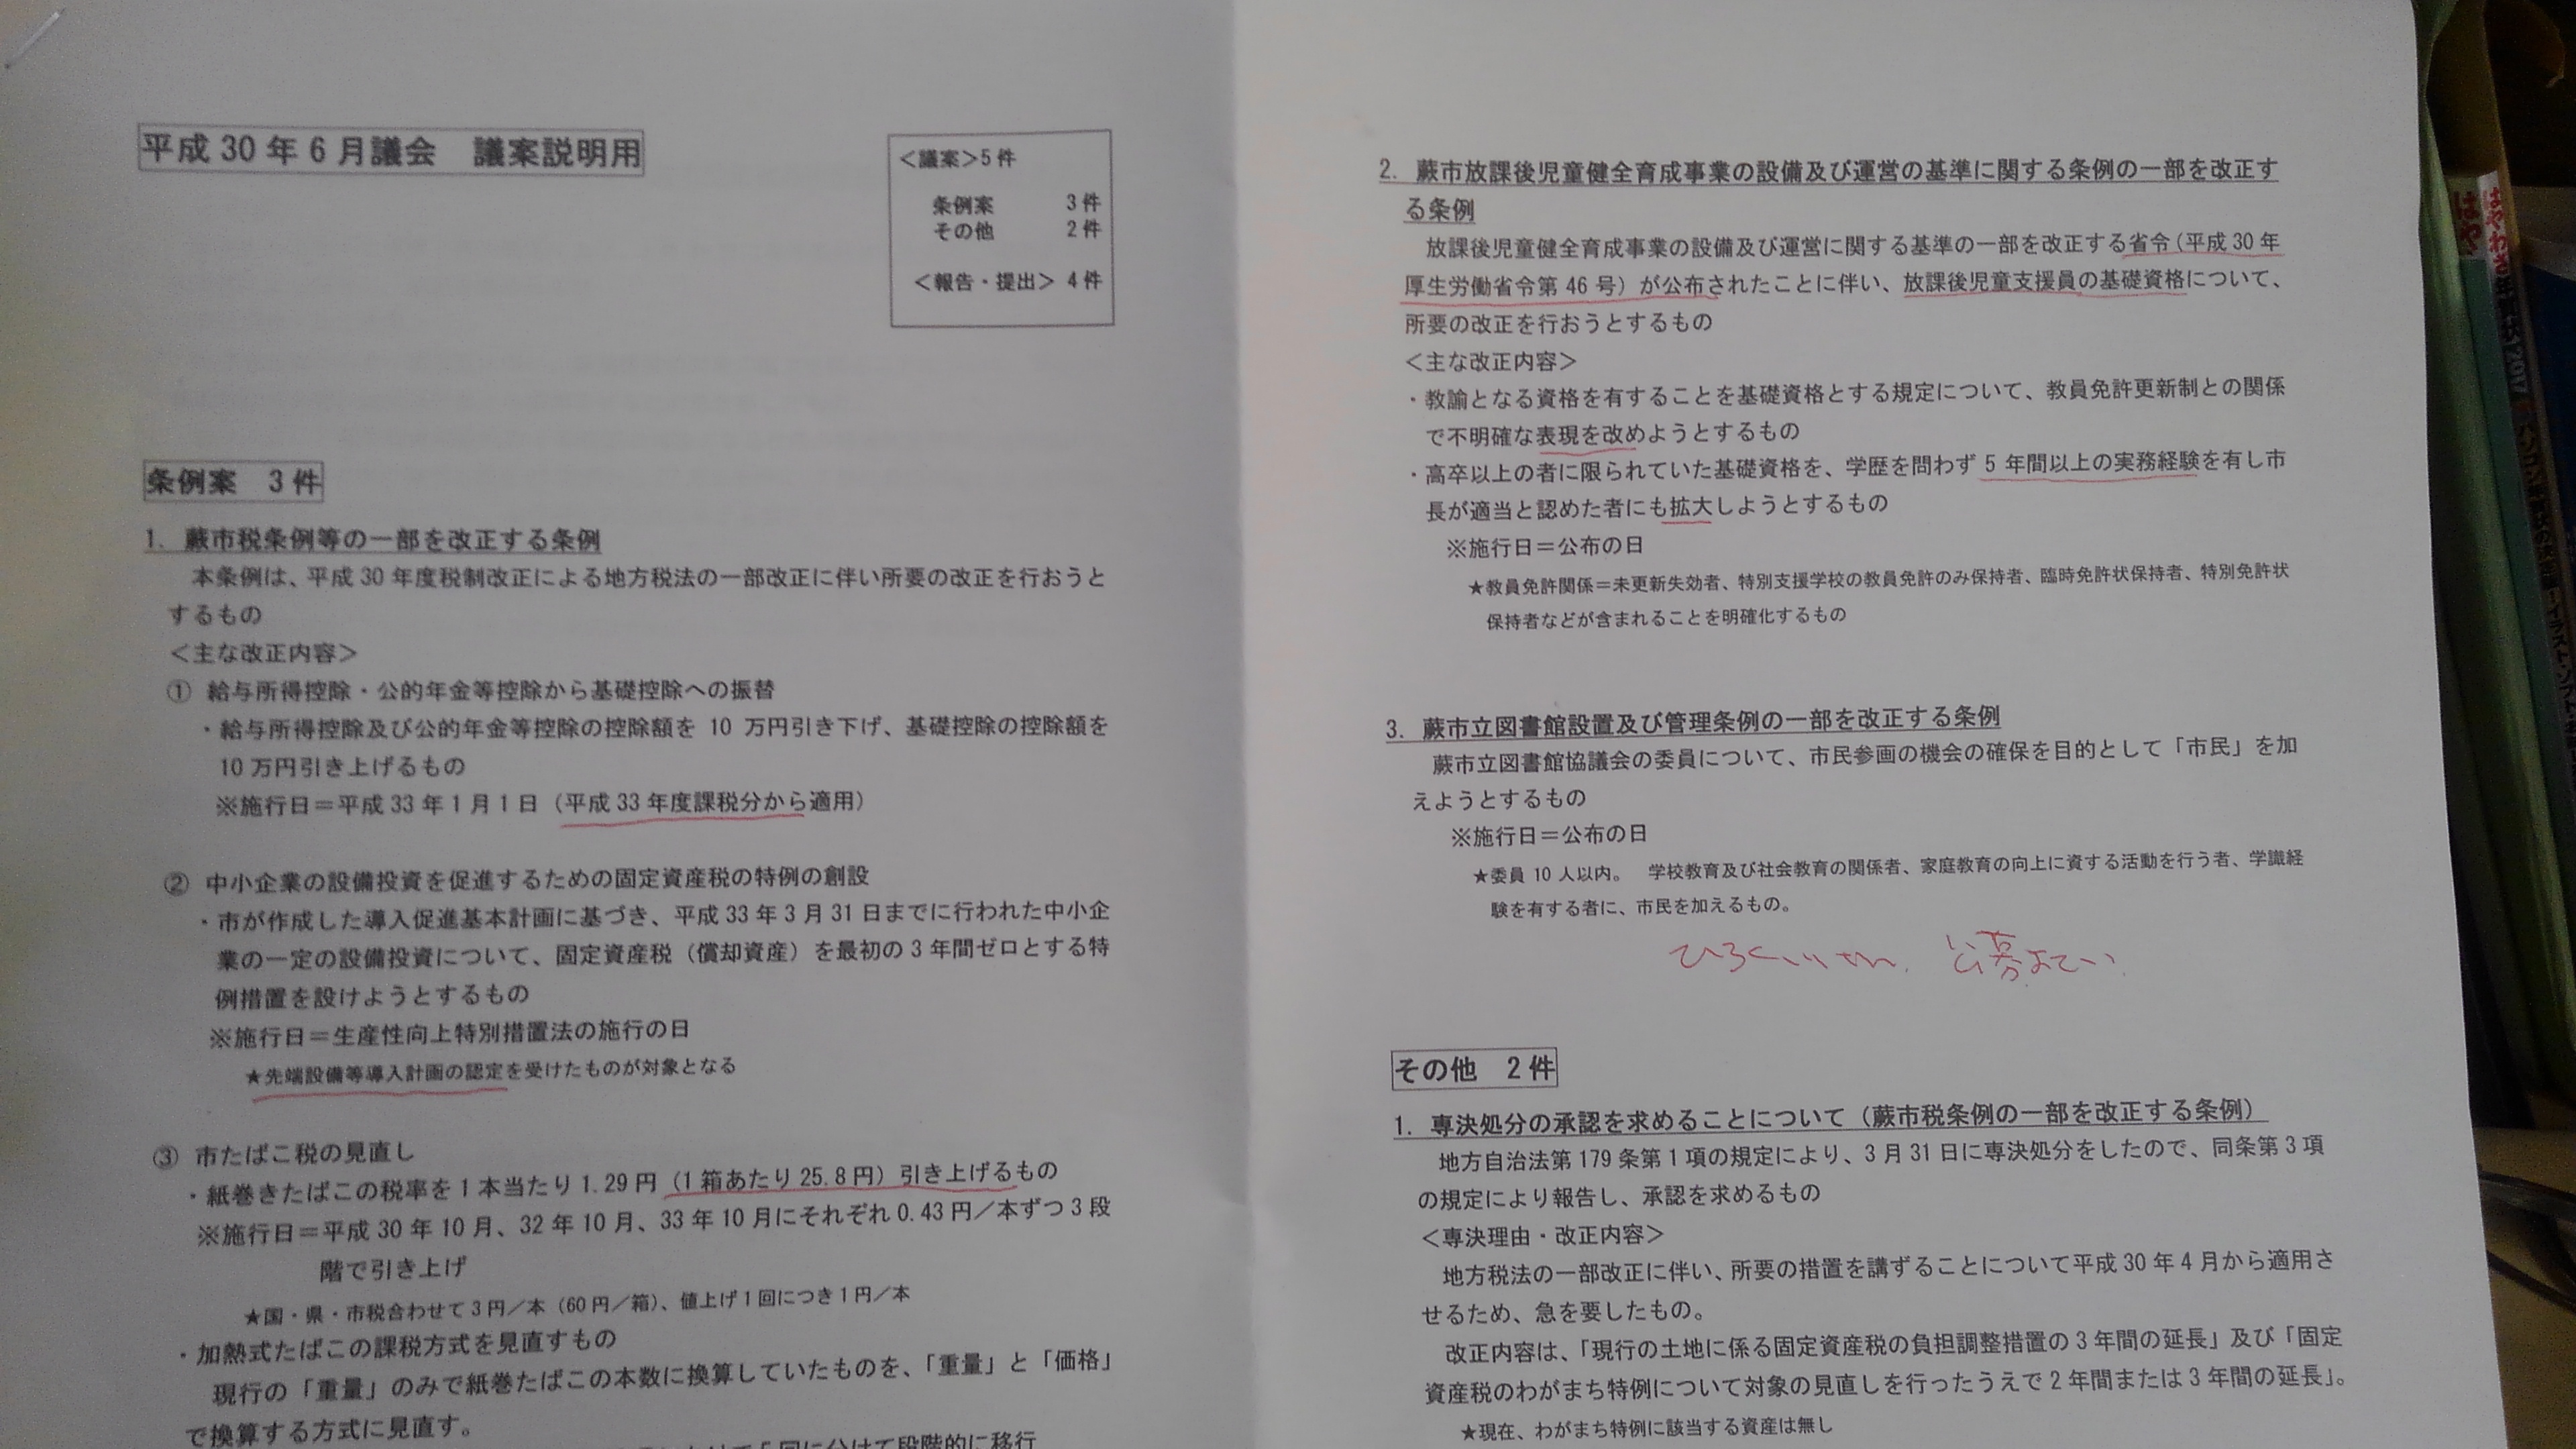 平成 30 年 6 月議会　議案説明用
＜議案＞5 件
条例案　3 件
その他　2 件
＜報告・提出＞ 4 件
条例案　3 件
1. 蕨市税条例等の一部を改正する条例
本条例は、平成 30 年度税制改正による地方税法の一部改正に伴い所要の改正を行おうと
するもの
＜主な改正内容＞
① 給与所得控除・公的年金等控除から基礎控除への振替
・給与所得控除及び公的年金等控除の控除額を 10 万円引き下げ、基礎控除の控除額を
10 万円引き上げるもの
※施行日＝平成 33 年 1 月 1 日（平成 33 年度課税分から適用）
② 中小企業の設備投資を促進するための固定資産税の特例の創設
・市が作成した導入促進基本計画に基づき、平成 33 年 3 月 31 日までに行われた中小企
業の一定の設備投資について、固定資産税（償却資産）を最初の 3 年間ゼロとする特
例措置を設けようとするもの
※施行日＝生産性向上特別措置法の施行の日
★先端設備等導入計画の認定を受けたものが対象となる
③ 市たばこ税の見直し
・紙巻きたばこの税率を 1 本当たり 1.29 円（1 箱あたり 25.8 円）引き上げるもの
※施行日＝平成 30 年 10 月、32 年 10 月、33 年 10 月にそれぞれ 0.43 円／本ずつ 3 段
階で引き上げ
★国・県・市税合わせて 3 円／本（60 円／箱）、値上げ 1 回につき 1 円／本
・加熱式たばこの課税方式を見直すもの
現行の「重量」のみで紙巻たばこの本数に換算していたものを、「重量」と「価格」
で換算する方式に見直す。
5 回に分けて段階的に移行
2. 蕨市放課後児童健全育成事業の設備及び運営の基準に関する条例の一部を改正す
る条例
放課後児童健全育成事業の設備及び運営に関する基準の一部を改正する省令（平成 30 年
厚生労働省令第 46 号）が公布されたことに伴い、放課後児童支援員の基礎資格について、
所要の改正を行おうとするもの
＜主な改正内容＞
・教諭となる資格を有することを基礎資格とする規定について、教員免許更新制との関係
で不明確な表現を改めようとするもの
・高卒以上の者に限られていた基礎資格を、学歴を問わず 5 年間以上の実務経験を有し市
長が適当と認めた者にも拡大しようとするもの
※施行日＝公布の日
★教員免許関係＝未更新失効者、特別支援学校の教員免許のみ保持者、臨時免許状保持者、特別免許状
保持者などが含まれることを明確化するもの
3. 蕨市立図書館設置及び管理条例の一部を改正する条例
蕨市立図書館協議会の委員について、市民参画の機会の確保を目的として「市民」を加
えようとするもの
※施行日＝公布の日
★委員 10 人以内。　学校教育及び社会教育の関係者、家庭教育の向上に資する活動を行う者、学識経
験を有する者に、市民を加えるもの。
その他　2 件
1. 専決処分の承認を求めることについて（蕨市税条例の一部を改正する条例）
地方自治法第 179 条第 1 項の規定により、3 月 31 日に専決処分をしたので、同条第 3 項
の規定により報告し、承認を求めるもの
＜専決理由・改正内容＞
地方税法の一部改正に伴い、所要の措置を講ずることについて平成 30 年 4 月から適用さ
せるため、急を要したもの。
改正内容は、「現行の土地に係る固定資産税の負担調整措置の 3 年間の延長」及び「固定
資産税のわがまち特例について対象の見直しを行ったうえで 2 年間または 3 年間の延長」。
★現在、わがまち特例に該当する資産は無し